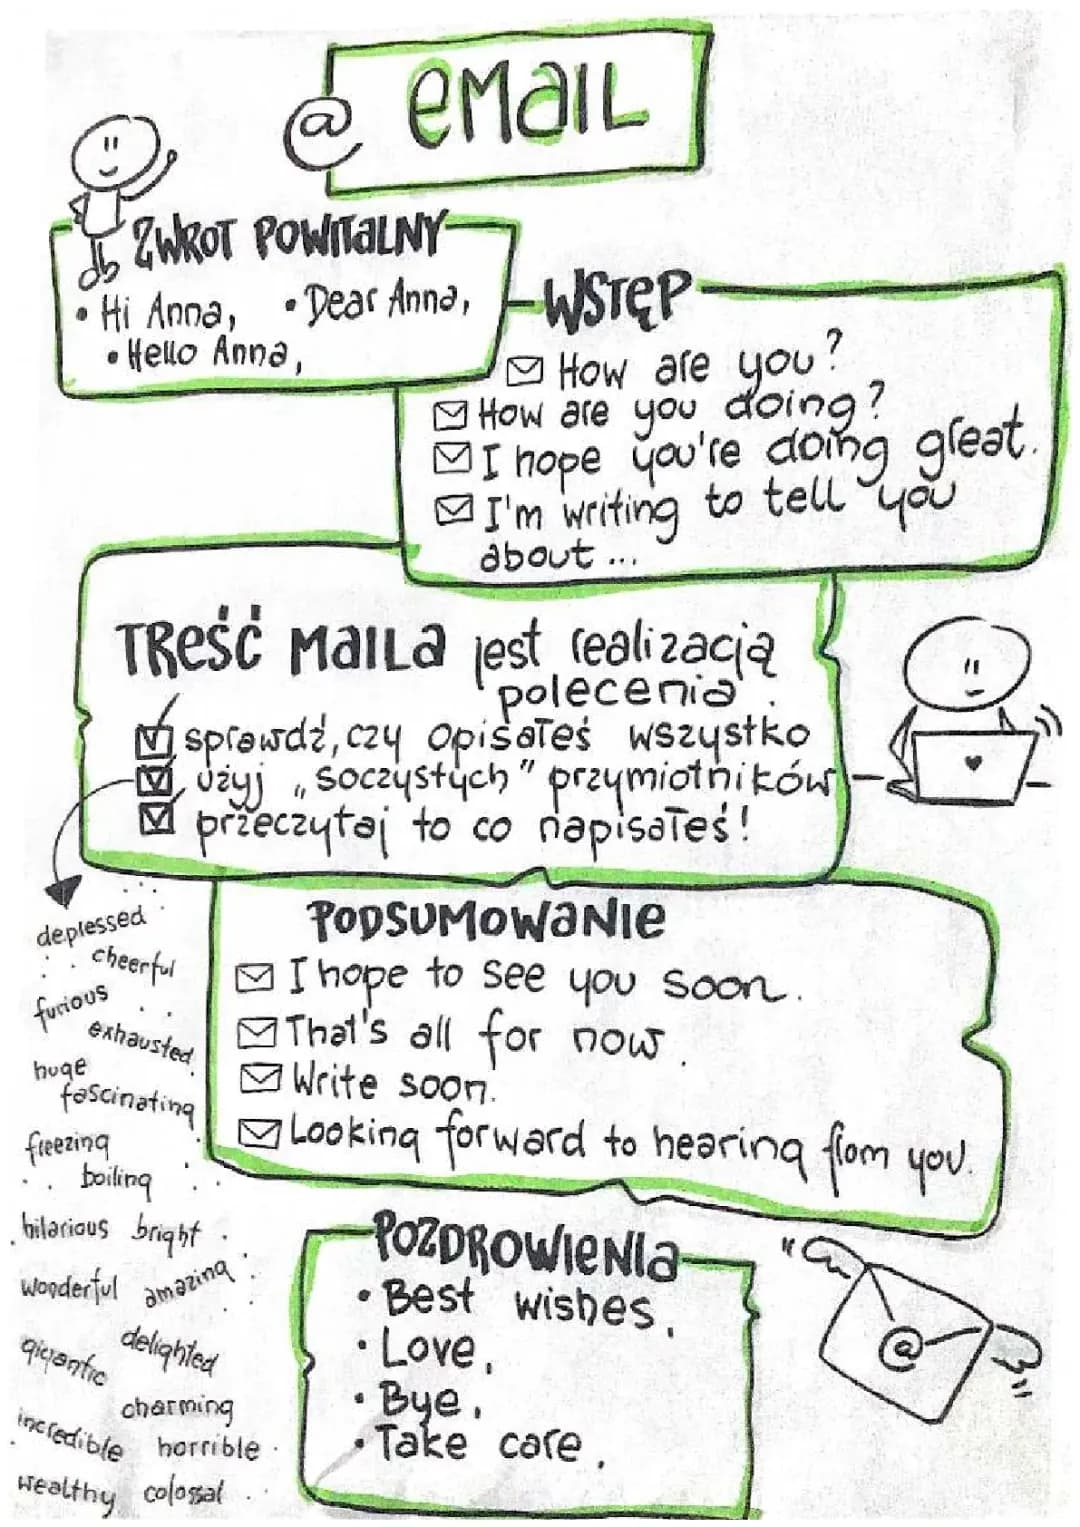 @ eMaIL
ZWROT POWITaLNY
• Hi Anna, • Dear Anna,
• Hello Anna,
WSTĘP
How are you?
How are you doing?
I hope you're doing great.
I'm writing to tell you
about...
TReŚĆ MaILa jest realizacją
polecenia.
sprawdź, czy opisałeś wszystko
użyj „soczystych" przymiotników
przeczytaj to co napisałeś!
depressed
cheerful
furious
exhausted
huge
fascinating
freezing
boiling
hilarious bright
wonderful amazing
gigantic delighted
charming
incredible horrible
wealthy colossal
PODSUMOWaNIe
I hope to see you soon.
That's all for now.
Write soon.
Looking forward to hearing from you.
POZDROWIeNIa
• Best wishes,
• Love,
• Bye,
• Take care,
@